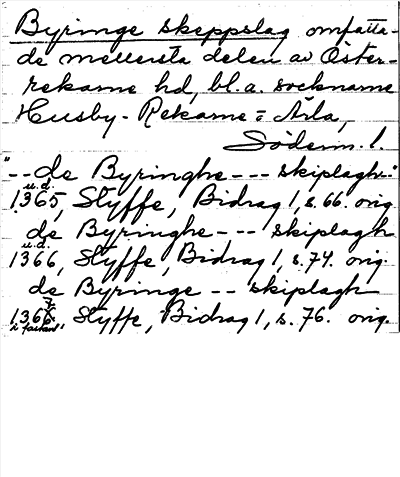 Byringe skeppslag omfatta-
de mellersta delen av Öster-
rekarne hd, bl.a. socknarne
Husby-Rekarne o Ärla,
Söderm. l.
"--de Byringhe --- skiplagh"
u.d.
1365, Styffe, Bidrag 1, s. 66. orig
de Byringhe --- skiplagh
u.d.
1366, Styffe, Bidrag 1, s. 74. orig.
de Byringe -- skiplagh
1366, Styffe, Bidrag 1, s. 76. orig.